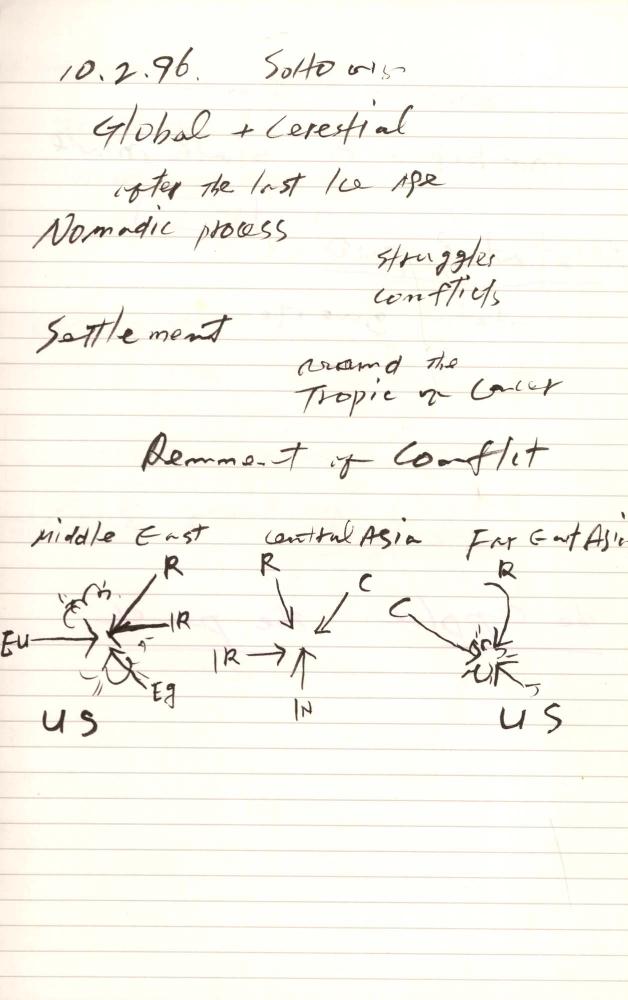 10.2.96.
Global + Cerestial
after the last Ice Age
Nomadic process
struggles
conflicts
Settlement
around the
Tropic of Cancer
Remment of Conflict
Middle East Central Asia Far East Asia
R R R
C C
Eu IR IR
Eg
IN
US US